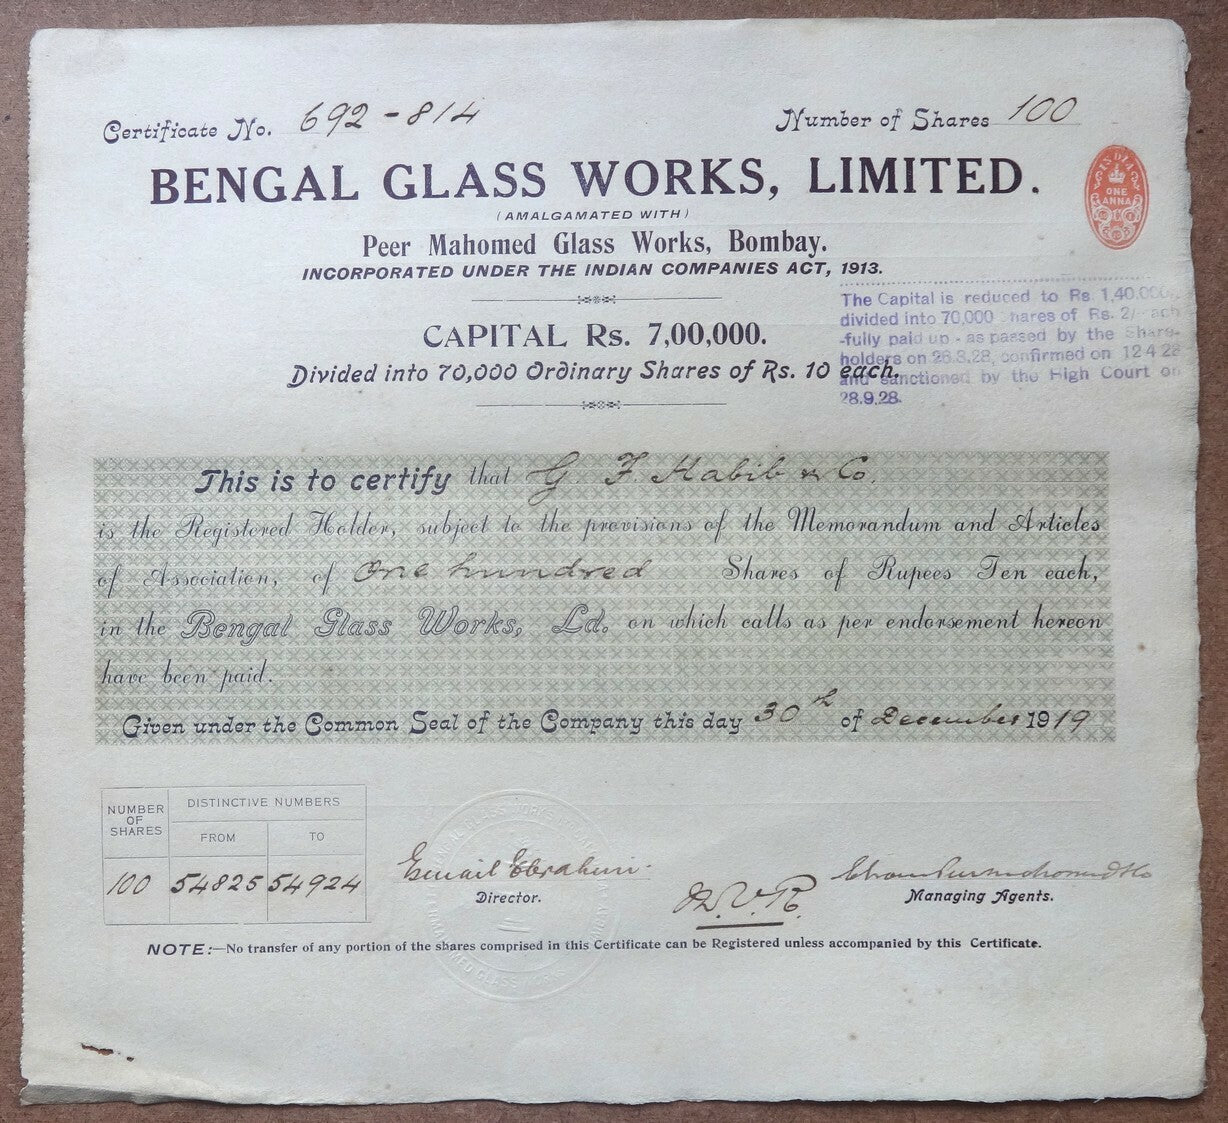 Certificate No. 692-814
Number of Shares 100
BENGAL GLASS WORKS, LIMITED.
(AMALGAMATED WITH)
Peer Mahomed Glass Works, Bombay.
INCORPORATED UNDER THE INDIAN COMPANIES ACT, 1913.
INDIA
ONE
ANNA
CAPITAL Rs. 7,00,000.
Divided into 70,000 Ordinary Shares of Rs. 10 each.
The Capital is reduced to Rs. 1,40,000
divided into 70,000 shares of Rs. 2/- each
-fully paid up - as passed by the Share-
holders on 26.3.28, confirmed on 12 4 28
and sanctioned by the High Court on
28.9.28.
This is to certify that G. F. Habib & Co.
is the Registered Holder, subject to the provisions of the Memorandum and Articles
of Association, of One hundred Shares of Rupees Ten each,
in the Bengal Glass Works, Ld. on which calls as per endorsement hereon
have been paid.
Given under the Common Seal of the Company this day 30th of December 1919
NUMBER
OF
SHARES
DISTINCTIVE NUMBERS
FROM
TO
100 54825 54924
Esmail Ebrahim
Director.
Managing Agents.
NOTE:—No transfer of any portion of the shares comprised in this Certificate can be Registered unless accompanied by this Certificate.